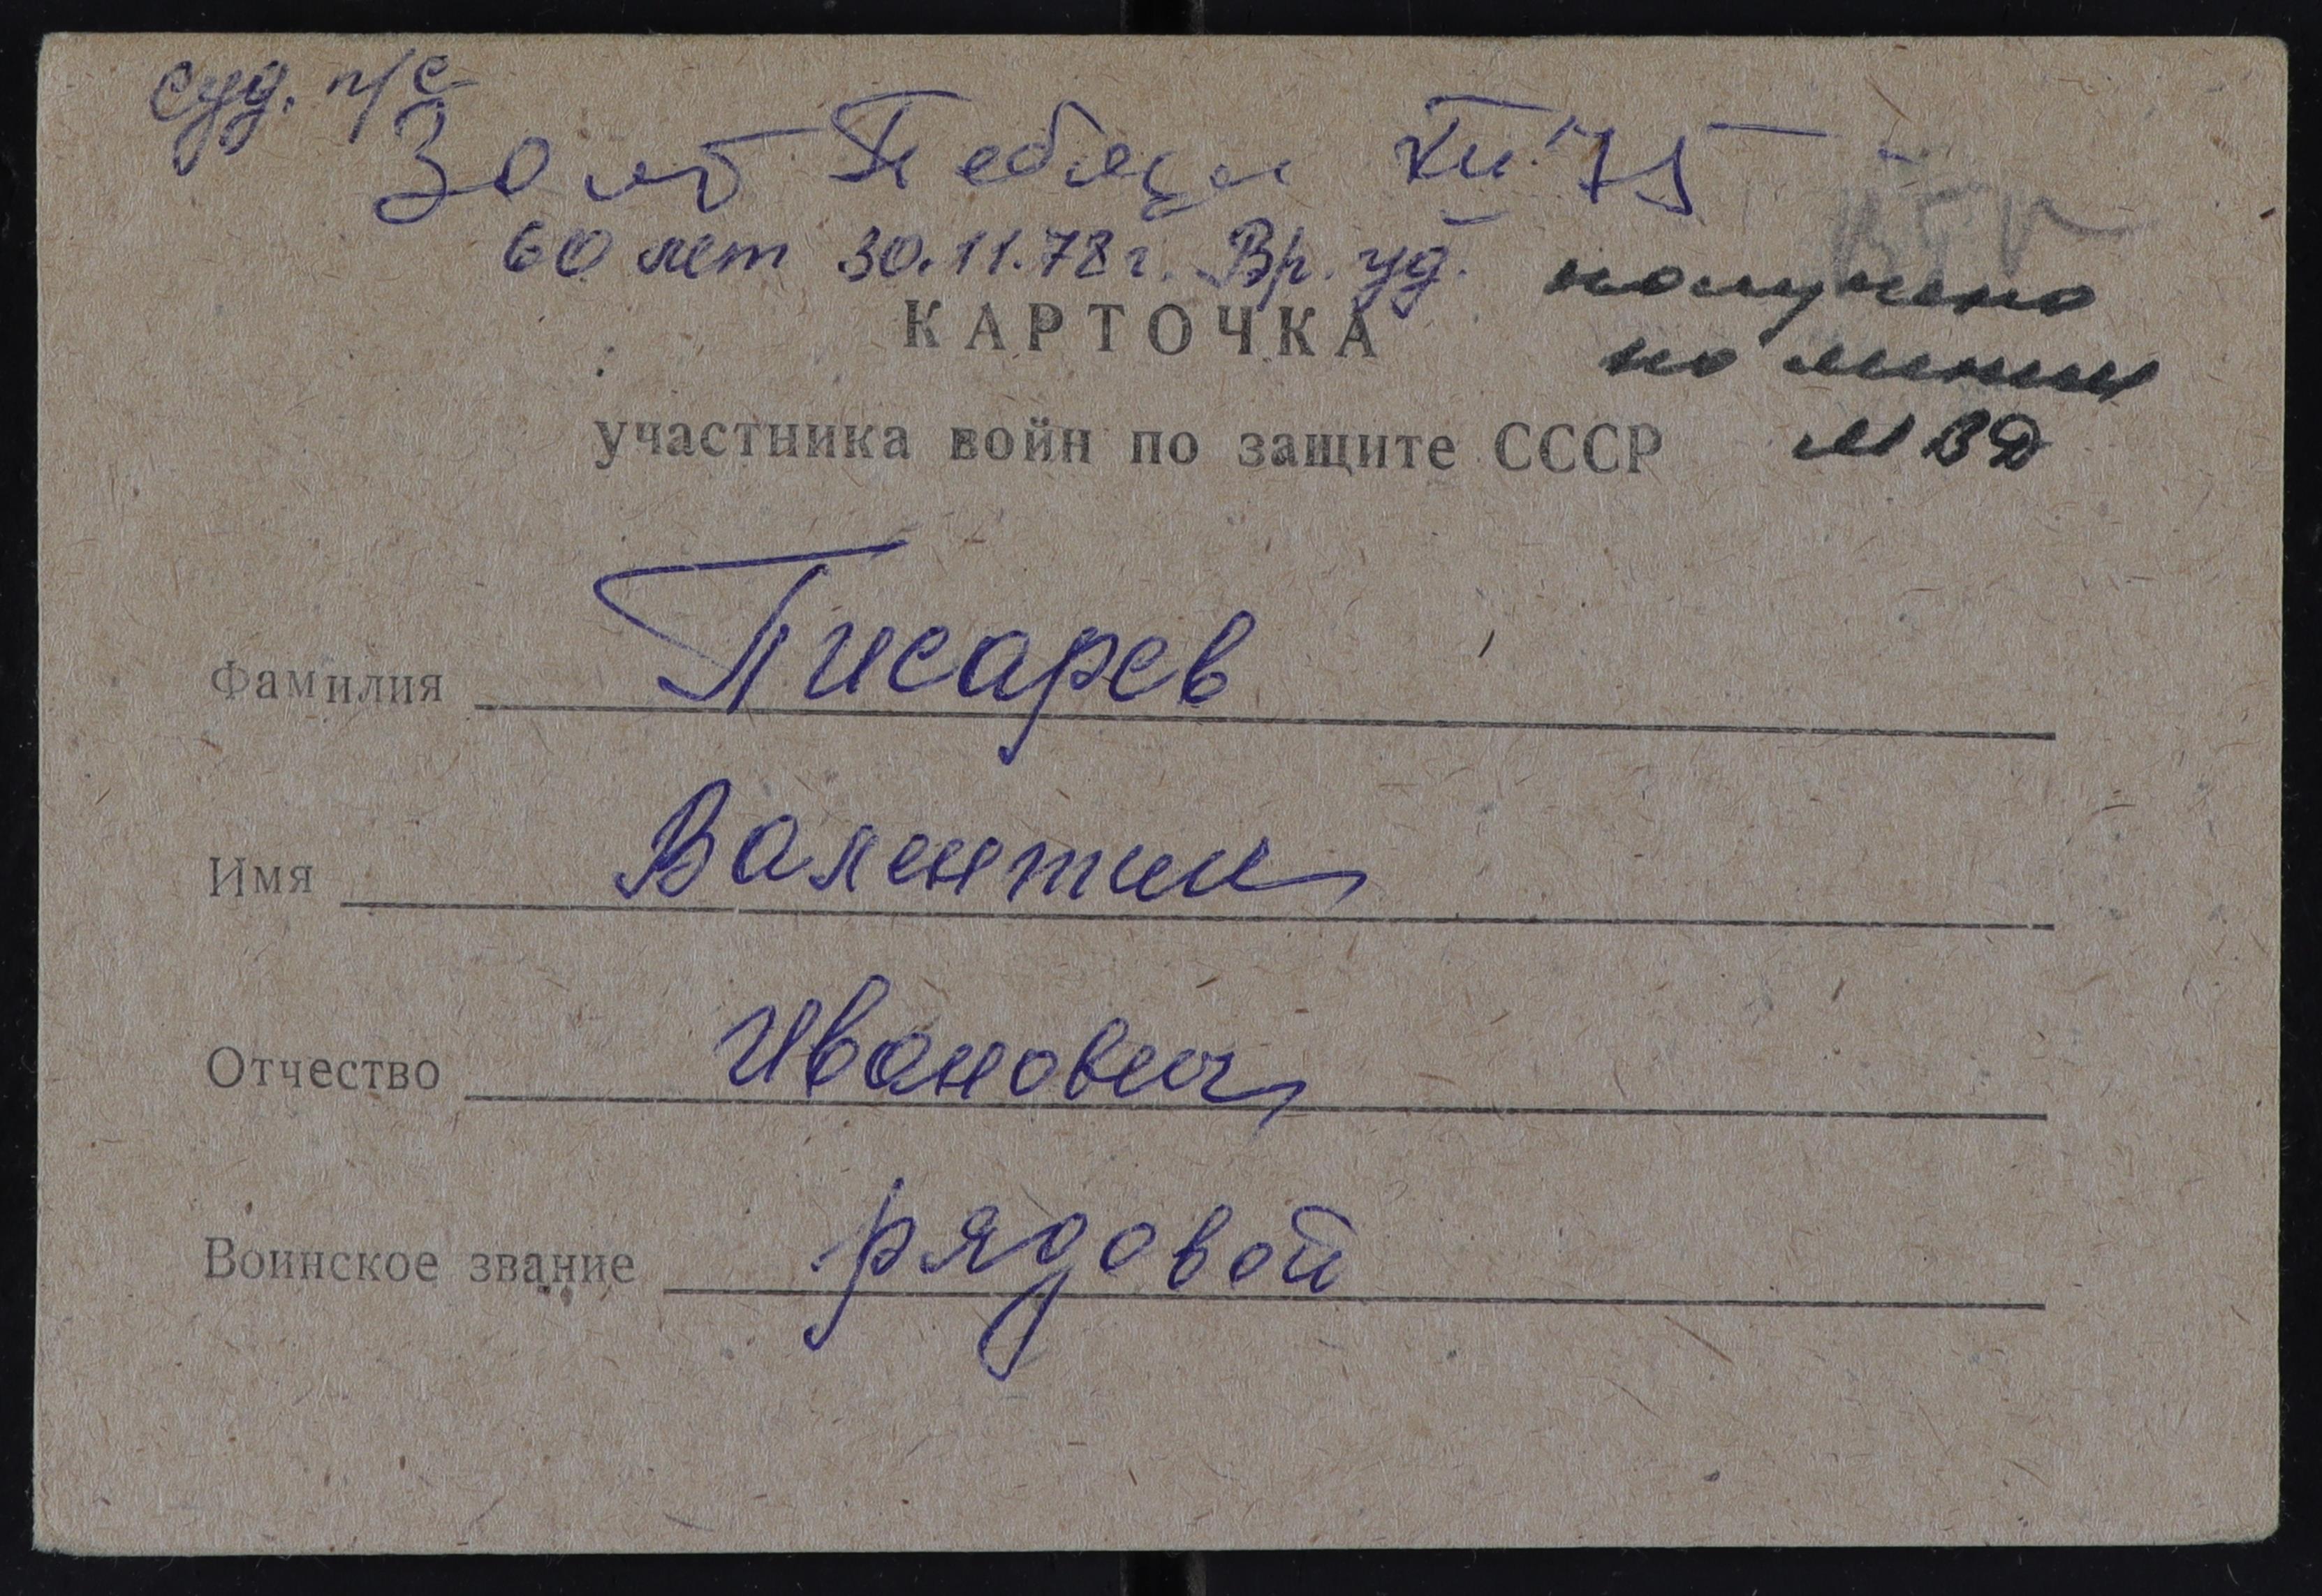 суд. п/с
30 лет Победы XII 75
60 лет 30.11.78г. Вр. уд.
получено
КАРТОЧКА
по линии
участника войн по защите СССР
МВД
Фамилия Писарев
Имя Валентин
Отчество Иванович
Воинское звание рядовой